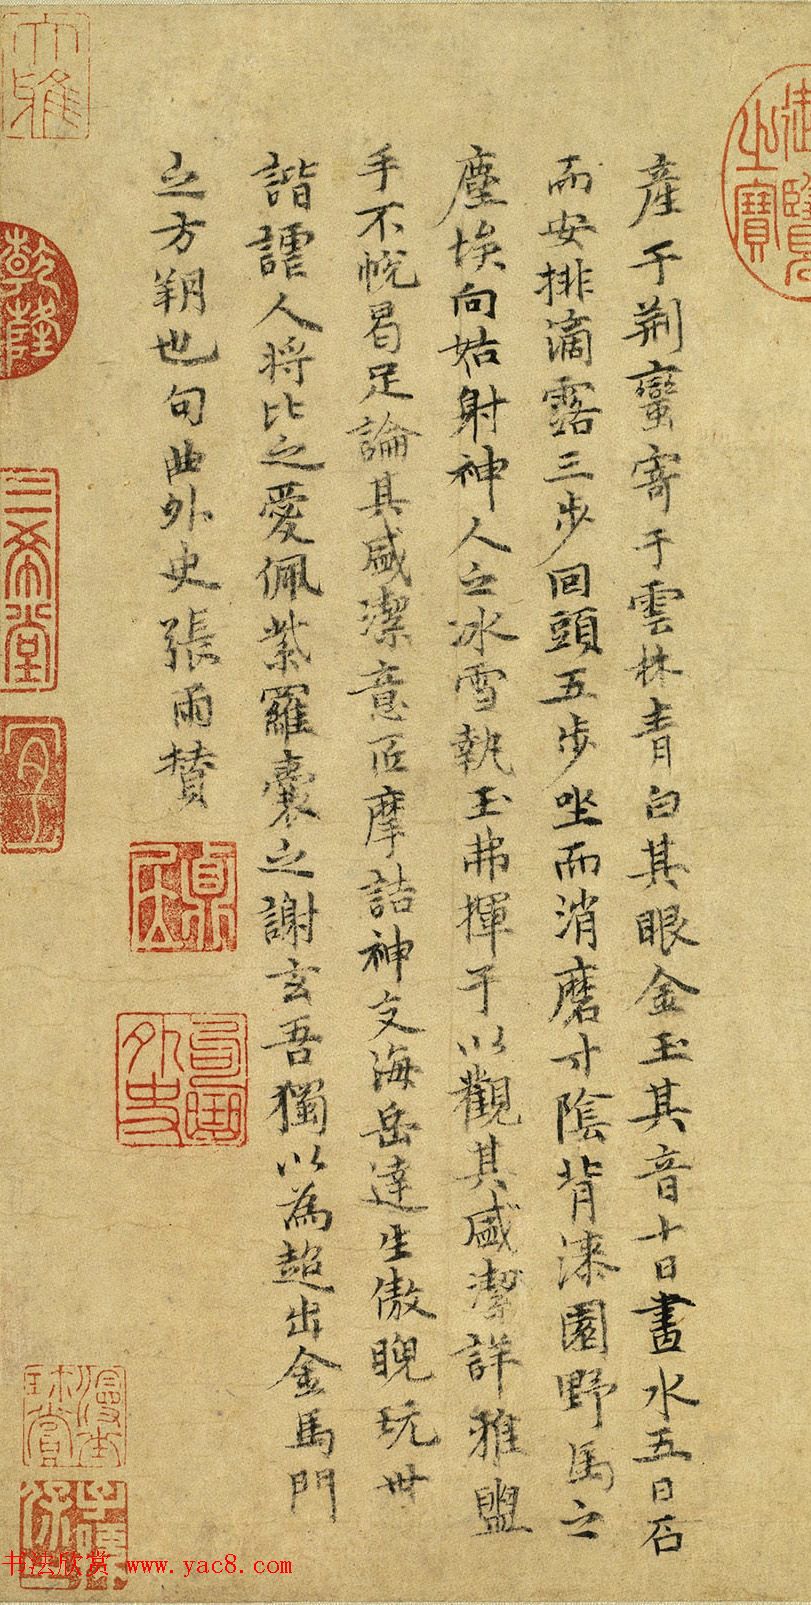 產于荊蠻寄于雲林青白其眼金玉其音十日畫水五日石
而安排滴露三步回頭五步坐而消磨寸陰背漆園野馬之
塵埃向姑射神人之冰雪執玉茀揮于以觀其盛潔詳雅盥
手不帨曷足論其盛潔意匠摩詰神交海岳達生傲睨玩世
諧謔人將比之愛佩紫羅囊之謝玄吾獨以為超出金馬門
之方朔也句曲外史張雨贊
御覽之寶
大雅
乾隆
三希堂
宜子
句曲外史
書法欣赏 www.yac8.com